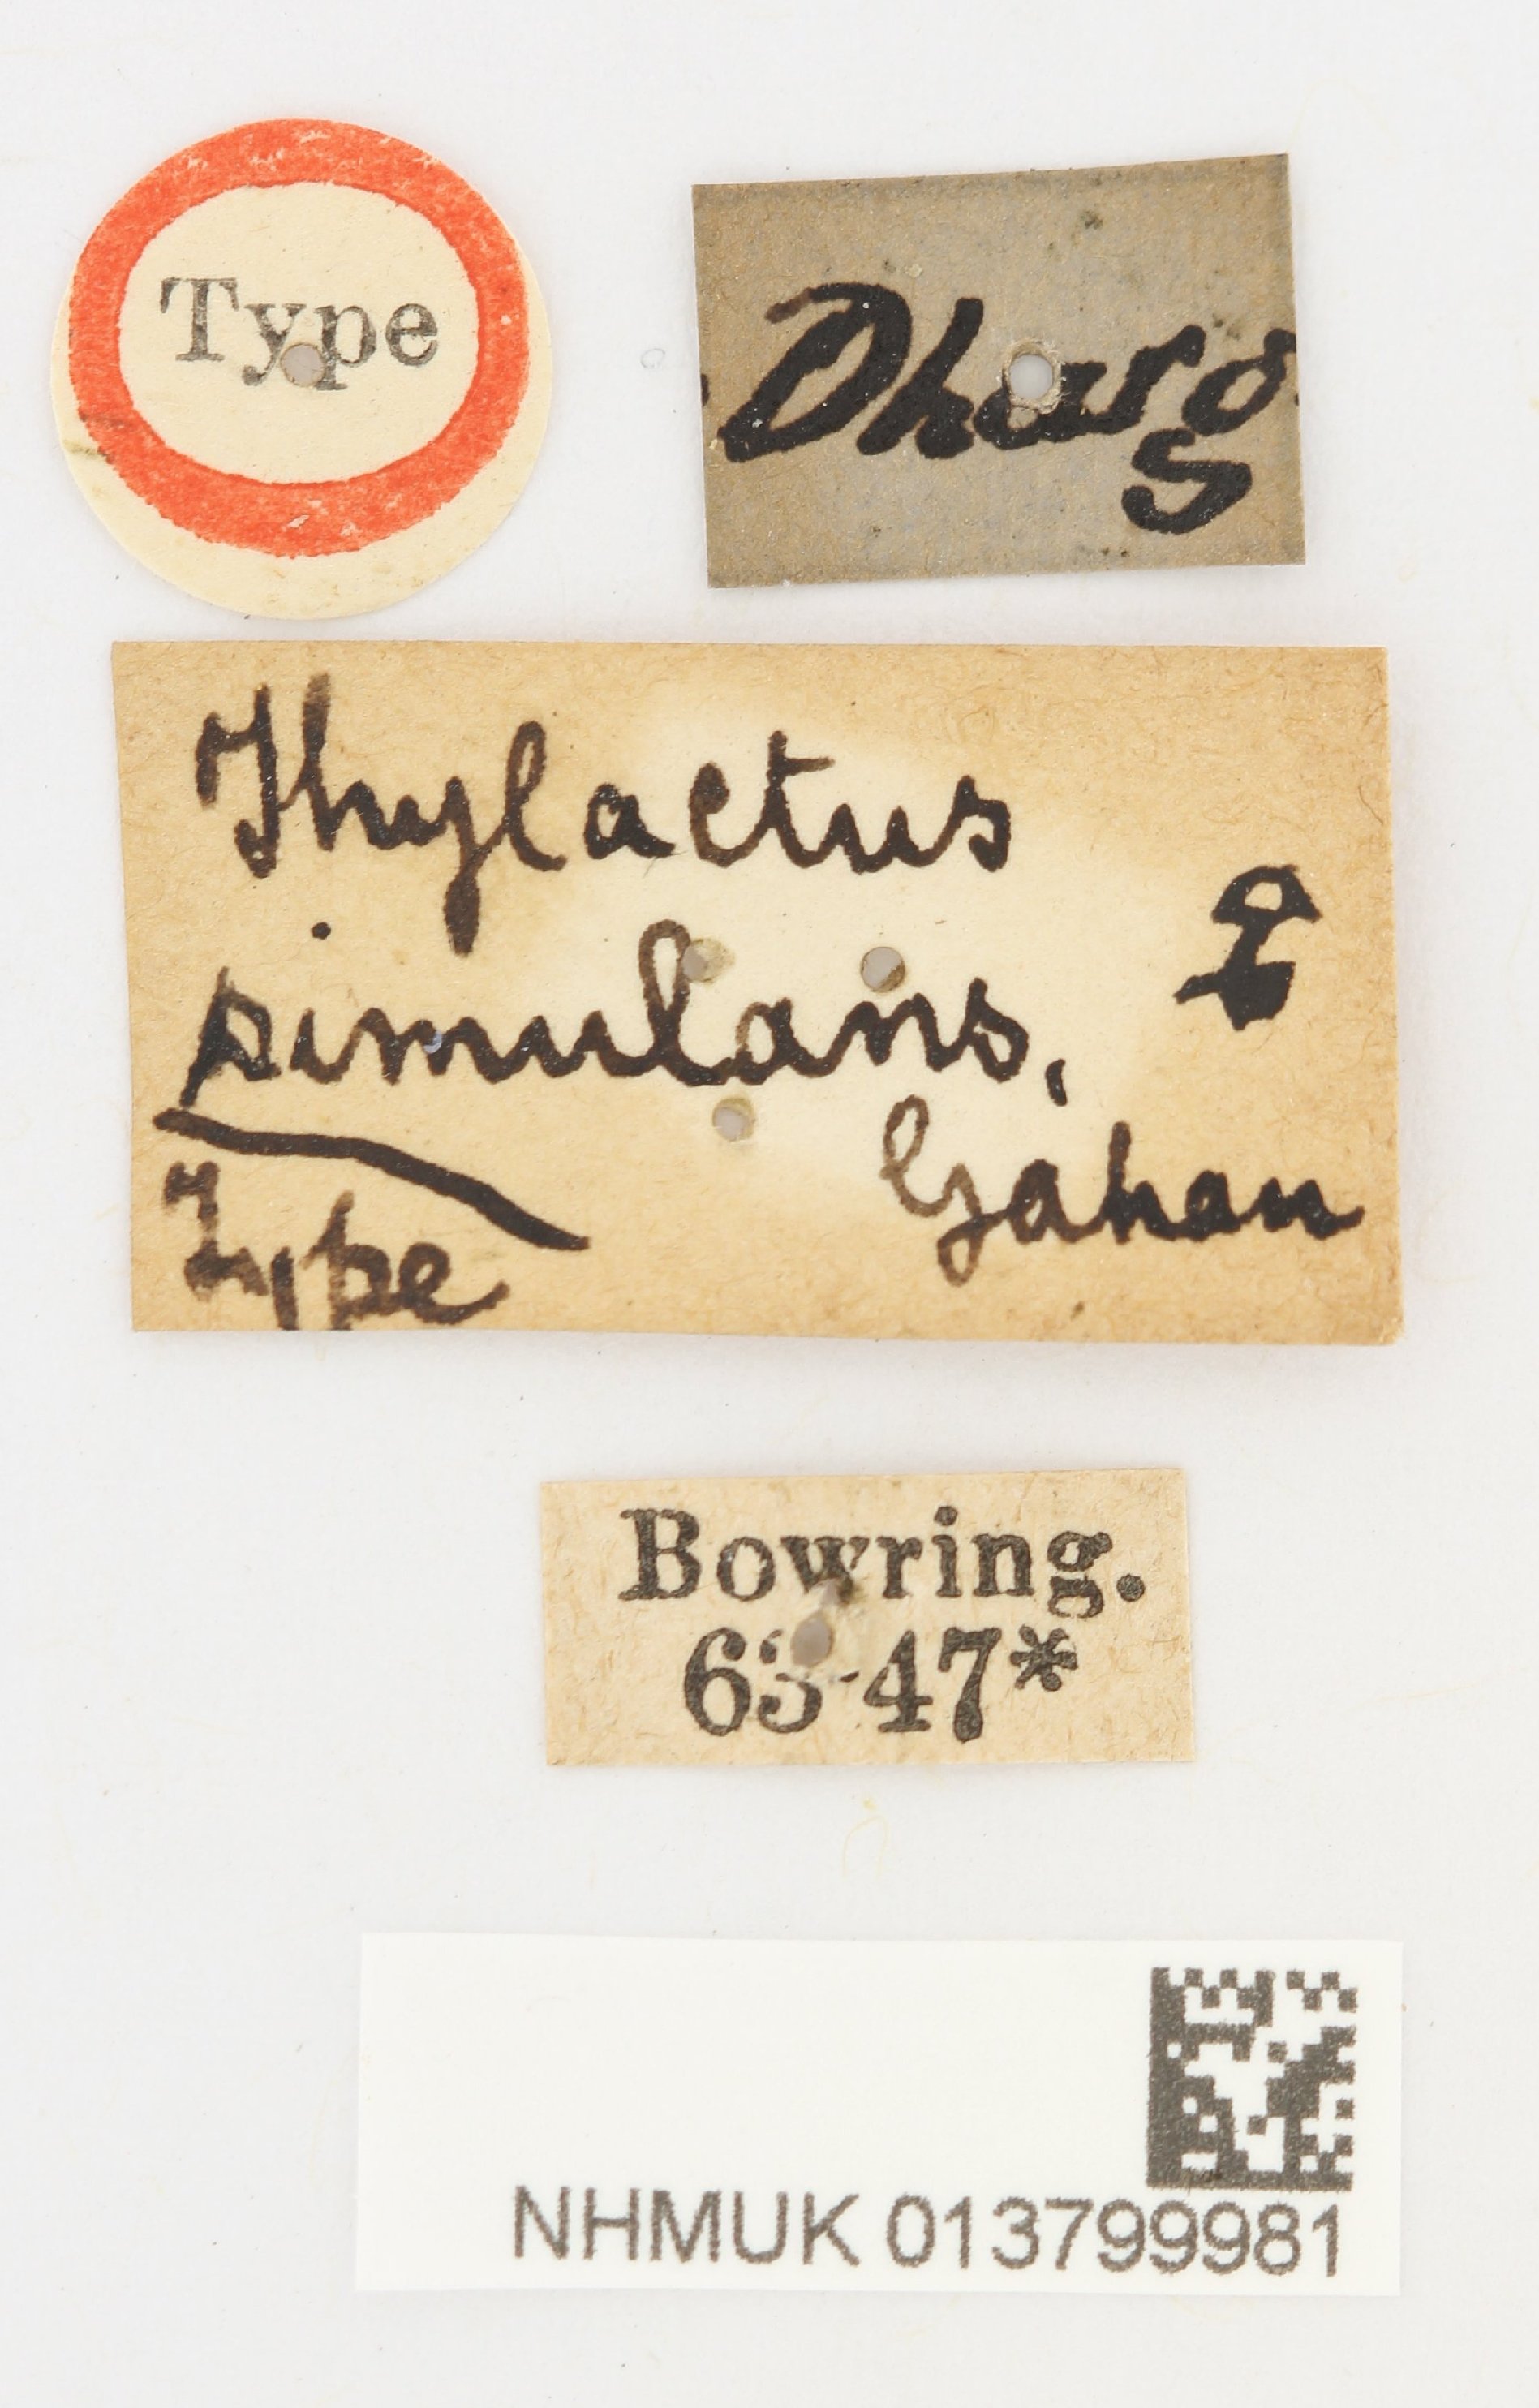 Type
Dharg
Thylactus
simulans, ♀
Gahan
Type
Bowring.
63·47*
NHMUK 013799981